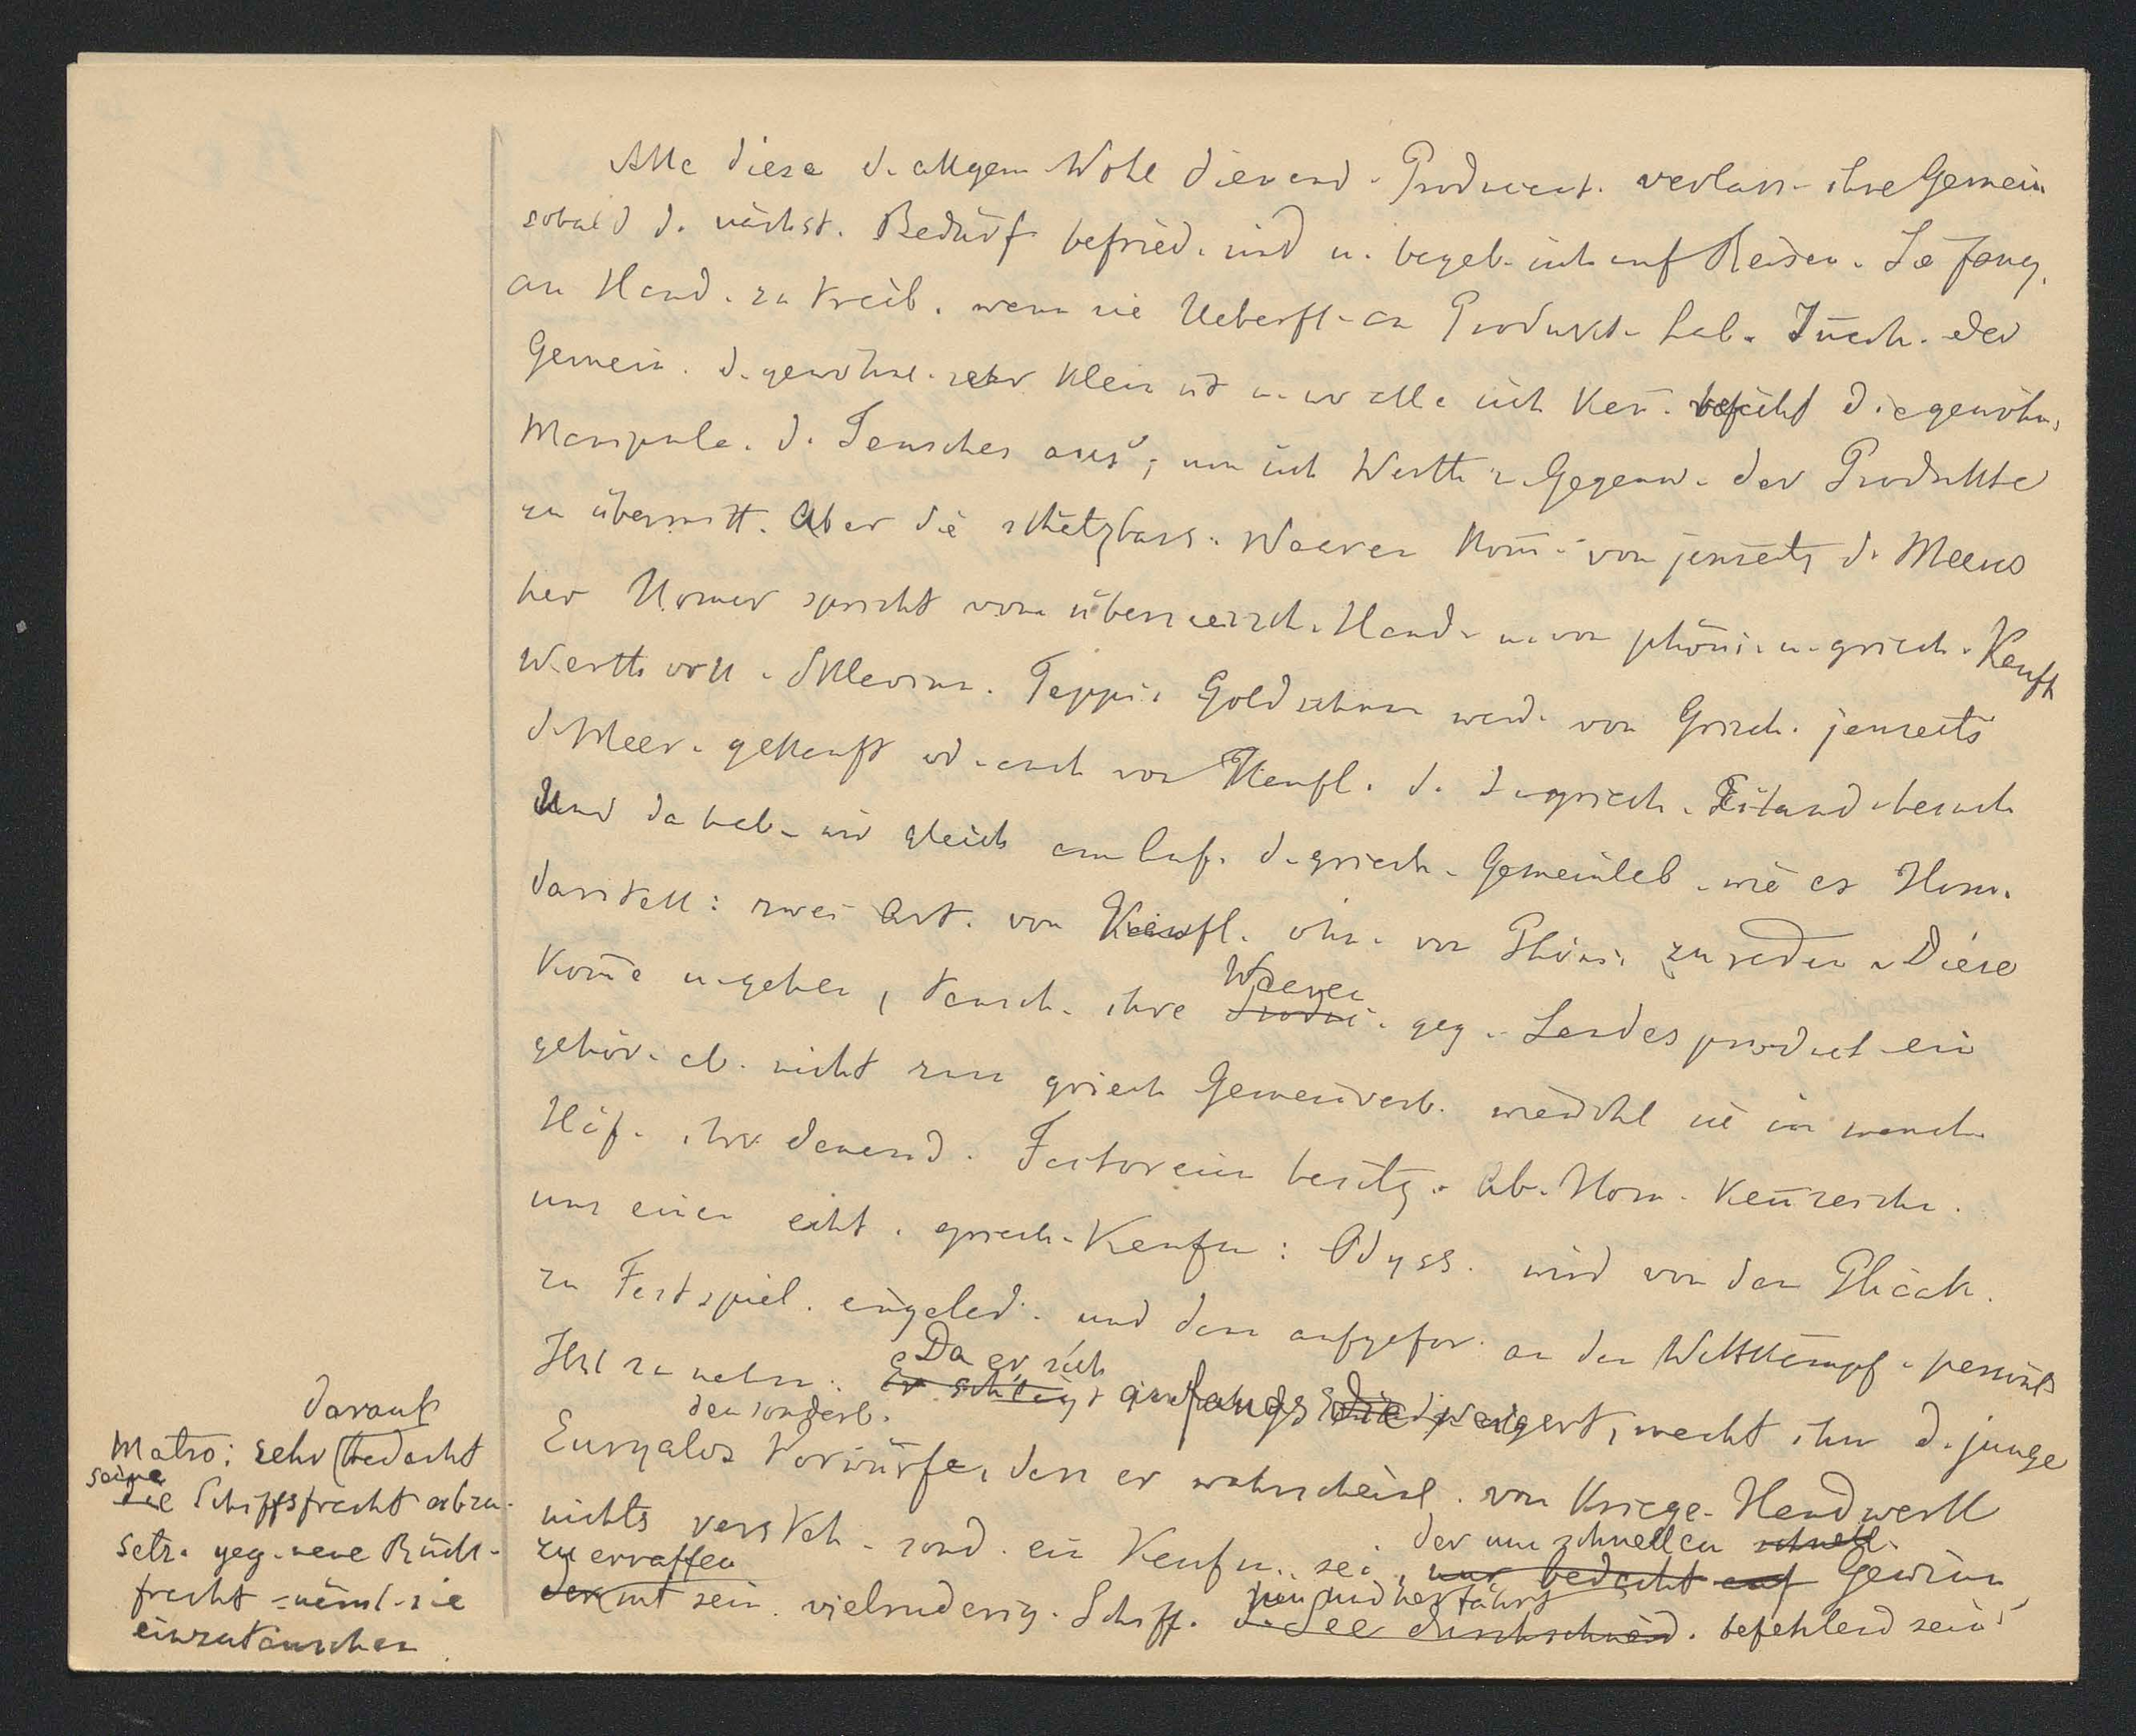 Alle diese d. allgem. Wohl dienend. Producent. verlass. ihre Gemein
sobald d. nächst. Bedürf. befried. sind u. begeb. sich auf Reisen. Sie fang.
an Hand. zu treib. wenn sie Ueberfl. an Produkt. hab. Innerh. der
Gemein. d. gewöhnl. sehr klein ist u. wo alle sich ken̄. reicht die gewöhn.
Manipula. d. Tausches aus, um sich Werth u. Gegenw. der Produkte
zu übermitt. Aber die schätzbars. Waaren kom̄. von jenseits d. Meeres
her Homer spricht vom überseeisch. Hand. u. von phöni. u. griech. Kaufl
Werthvoll. Sklavinn. Teppi. Goldschm. werd. von Griech. jenseits
d. Meer. gekauft od. auch von Kaufl. d. d. griech. Eiland. besuch
Und da hab. wir gleich am Anf. d. griech. Gemeinleb. wie es Hom.
darstell: zwei Art. von Kaufl. ohn. von Phöni. zu reden. Diese
kom̄e u. gehen, tausch. ihre Waaren geg. Landesproduct ein
gehör. ab. nicht zum griech Gemeinverb. wiewohl sie in manch.
Häf. ihr. dauernd. Factoreien besitz. Ab. Hom. ken̄zeich.
uns einen echt. griech. Kaufm: Odyss. wird von den Phäak.
zu Festspiel. eingelad. und dann aufgefor. an den Wettkämpf. persönl
Theil zu nehm. Da er sich
er schlägt anfangs die weigert, macht ihm d. junge
den sonderb.
Euryalos Vorwürfe, dass er wahrscheinl. von Kriegs-Handwerk
nichts versteh. sond. ein Kaufm. sei, der um schnellen schnell.
nur bedacht auf Gewinn
zu erraffen
der mit sein. vielruderig. Schiff. hin und herfährt
d. See durchschneid. befehlend sein
darauf
Matro: sehr bedacht
seine
die Schiffsfracht abzu-
setz. geg. neue Rück-
fracht näml. sie
einzutauschen